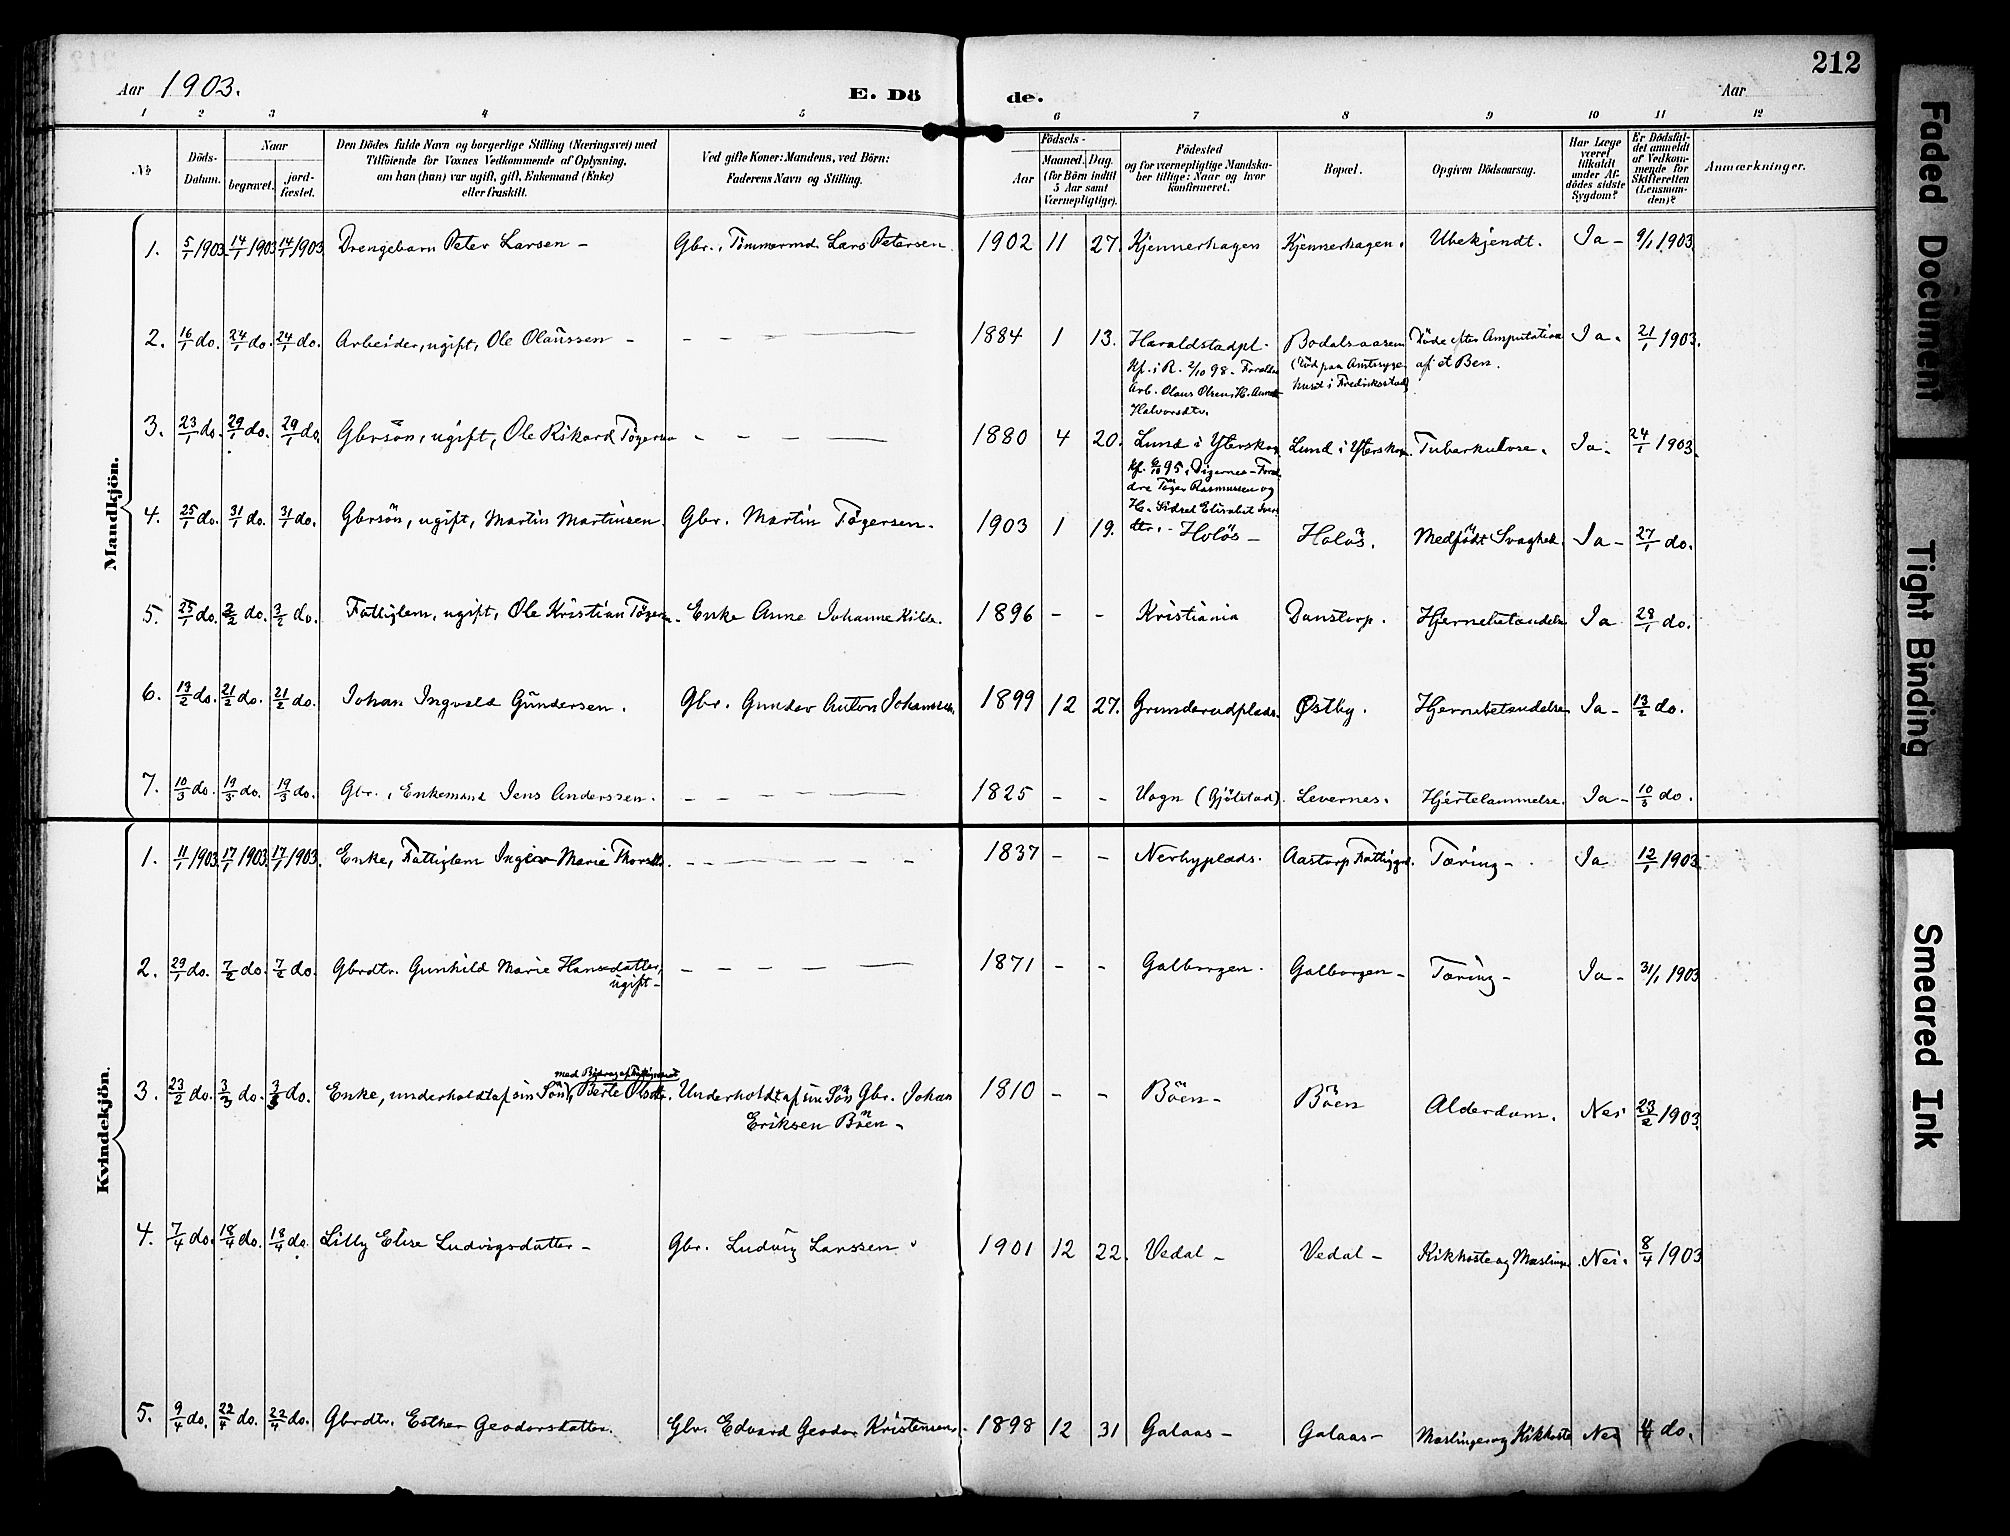 212
Aar 1903.
E. Dö
de.
Aar
1 2 3 4 5 6 7 8 9 10 11 12
No
Döds-Datum.
Naar
begravet.
jord-fæstet.
Den Dödes fulde Navn og borgerlige Stilling (Næringsvei) med
Tilföiende for Voxnes Vedkommende af Oplysning,
om han (hun) var ugift, gift, Enkemand (Enke)
eller fraskilt.
Ved gifte Koner: Mandens, ved Börn:
Faderens Navn og Stilling.
Födsels-
Aar
Maaned. Dag.
(for Börn indtil
5 Aar samt
Værnepligtige).
Födested
og for værnepligtige Mandska-
ber tillige: Naar og hvor
Konfirmeret.
Bopæl.
Opgiven Dödsaarsag.
Har Læge
været
tilkaldt
under Af-
dödes sidste
Sygdom?
Er Dödsfal-
det anmeldt
af Vedkom-
mende for
Skifteretten
(Lensman-
den)?
Anmærkninger.
Mandkjön.
1. 5/1 1903 14/1 1903 14/1 1903 Drengebarn Peter Larsen – Gbr., Tömmermd. Lars Petersen. 1902 11 27. Kjennerhagen Kjennerhagen. Ubekjendt. Ja – 9/1 1903.
2. 16/1 do. 24/1 do. 24/1 do. Arbeider, ugift, Ole Olaussen – – – – – 1884 1 13. Haraldstadpl. Bodalsaasen Döde efter Amputation Ja. 21/1 1903.
Kf. i R. 2/10 98. Forældre (Död paa Amtssyge- af et Ben.
Arb. Olaus Olsen, H. huset i Fredrikstad)
Halvorsdtr.
3. 23/1 do. 29/1 do. 29/1 do. Gbrsön, ugift, Ole Rikard Tögersen – – – – 1880 4 20. Lund i Ytterskog Lund i Ytterskog. Tuberkulose. Ja. 24/1 1903.
95, Digernes – Foræl-
dre Töger Rasmussen og
H. Sidsel Elisabet Iver
dtr. –
4. 25/1 do. 31/1 do. 31/1 do. Gbrsön, ugift, Martin Martinsen. Gbr. Martin Tögersen. 1903 1 19. Holös – Holös. Medfödt Svaghed. Ja – 27/1 do.
5. 25/1 do. 3/2 do. 3/2 do. Fattiglem, ugift, Ole Kristian Tögersen. Enke Anne Johanne Kilde. 1896 – – Kristiania Danstorp. Hjernebetændelse Ja 28/1 do.
6. 13/2 do. 21/2 do. 21/2 do. Johan Ingvald Gundersen. Gbr. Gunder Anton Johanssen. 1899 12 27. Grinderudplads. Østby. Hjernebetændelse Ja – 13/2 do.
7. 10/3 do. 19/3 do. 19/3 do. Gbr., Enkemand Jens Anderssen. – – – – 1825 – – Vogn (Gjölstad). Levernes. Hjertelammelse. Ja – 10/3 do.
Kvindekjön.
1. 11/1 1903 17/1 1903 17/1 1903. Enke, Fattiglem Inger Marie Thorsdtr. – – – – 1837 – – Nerbyplads. Aastorp Fattiggd. Tæring – Ja 12/1 1903
2. 29/1 do. 7/2 do. 7/2 do. Gbrdtr. Gunhild Marie Hansdatter, – – – – 1871 – – Galborgen. Galborgen – Tæring – Ja – 31/1 1903
ugift –
med Bidrag af Fattigvæsenet
3. 23/2 do. 3/3 do. 3/3 do. Enke, underholdt af sin Sön, Berte Olsdtr. Underholdt af sin Sön Gbr. Johan 1810 – – Böen – Böen Alderdom. Nei 23/2 1903.
Eriksen Böen –
4. 7/4 do. 18/4 do. 18/4 do. Lilly Elise Ludvigsdatter – Gbr. Ludvig Larssen 1901 12 22. Vedal – Vedal – Kikhoste og Mæslinger Nei. 8/4 1903
5. 9/4 do. 22/4 do. 22/4 do. Gbrdtr. Esther Geodorsdatter. Gbr. Edvard Geodor Kristensen 1898 12 31 Galaas – Galaas – Mæslinger og Kikhoste Nei do.
Faded Document
Tight Binding
Smeared Ink